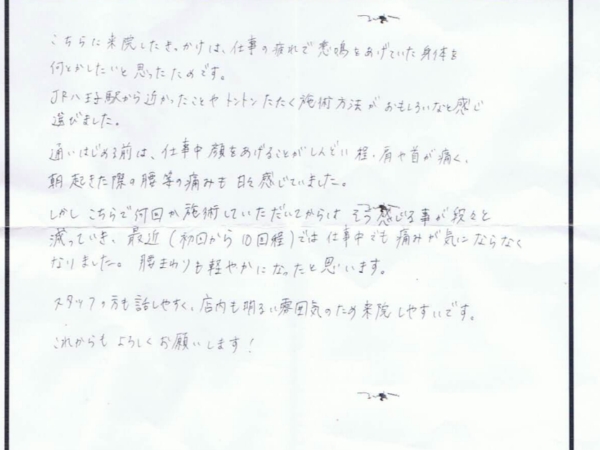 こちらに来院したきっかけは、仕事の疲れで悲鳴をあげていた身体を
何とかしたいと思ったためです。
JR八王子駅から近かったことやトントンたたく施術方法がおもしろいなと感じ
選びました。
通いはじめる前は、仕事中顔をあげることがしんどい程、肩や首が痛く、
朝起きた際の腰等の痛みも日々感じていました。
しかしこちらで何回か施術していただいてからは そう感じる事が段々と
減っていき、最近(初回から10回程)では仕事中でも痛みが気にならなく
なりました。腰まわりも軽やかになったと思います。
スタッフの方も話しやすく、店内も明るい雰囲気のため来院しやすいです。
これからもよろしくお願いします!